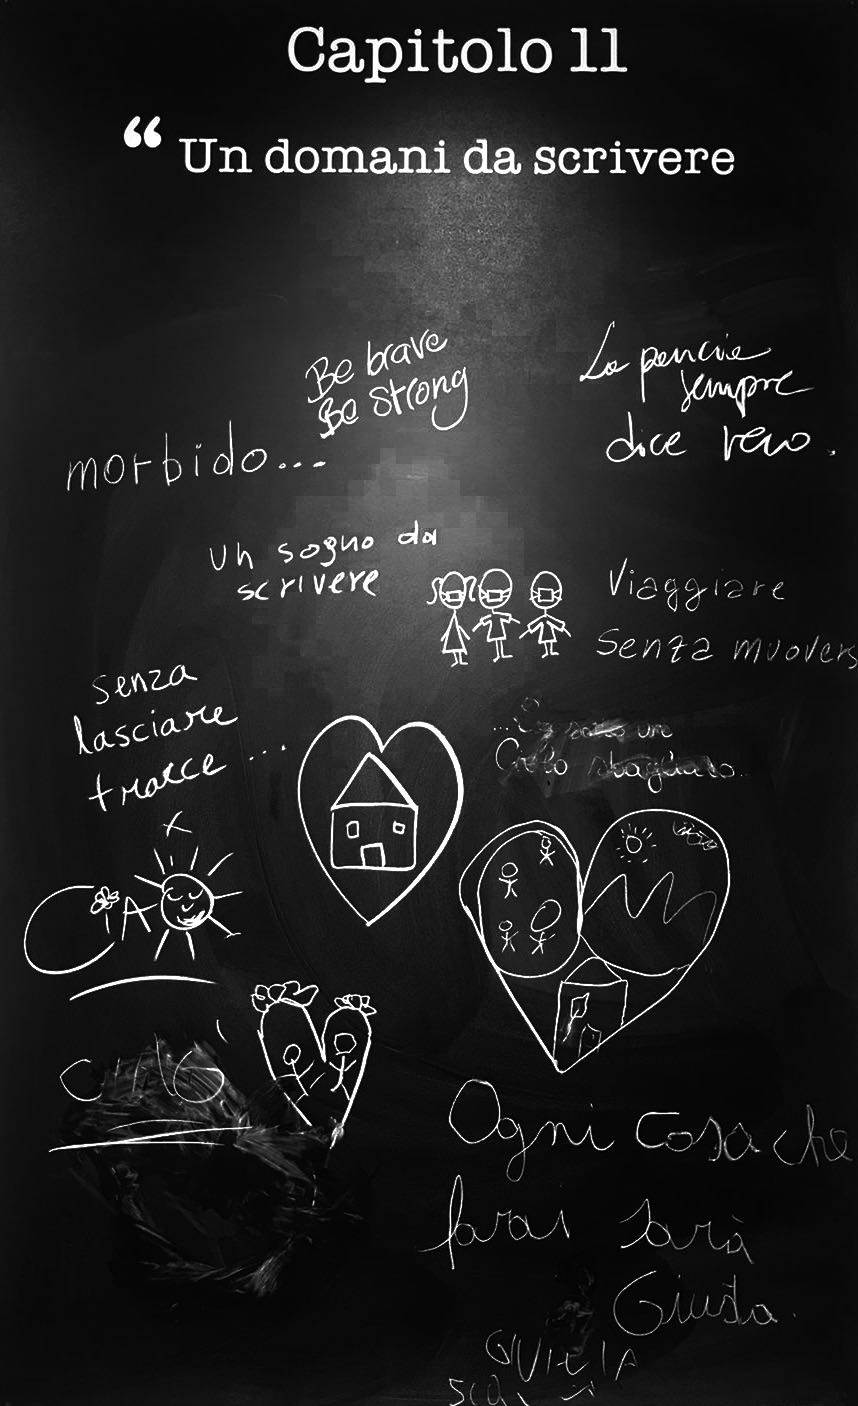 Capitolo 11
“ Un domani da scrivere
Be brave
Be strong
La pancia
sempre
dice vero.
morbido...
un sogno da
scrivere
Viaggiare
senza muovers
senza
lasciare
tracce ...
un
CIAO
CIAO
Ogni cosa che
farai sarà
Giusta.
GIULIA